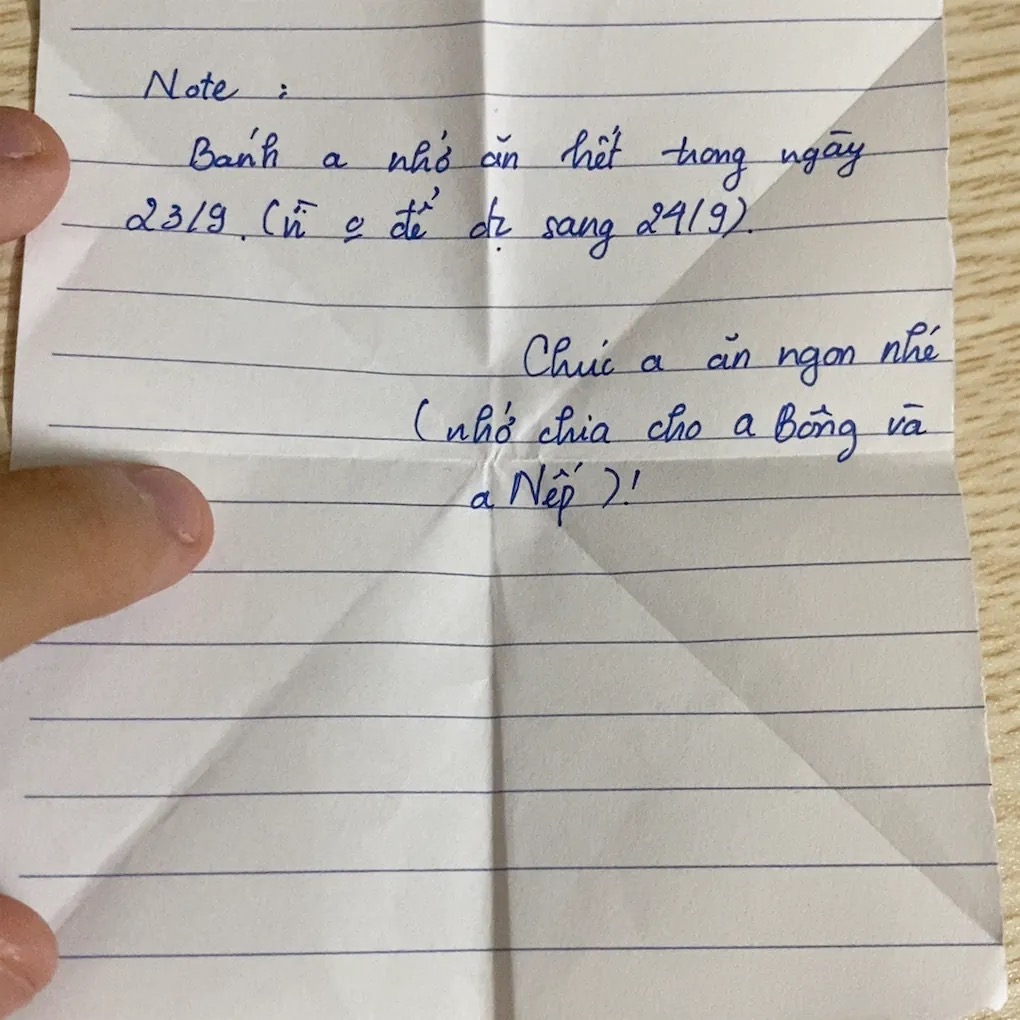 Note :
Bánh a nhớ ăn hết trong ngày
23/9. (vì o để đc sang 24/9).
Chúc a ăn ngon nhé
(nhớ chia cho a Bông và
a Nếp)!